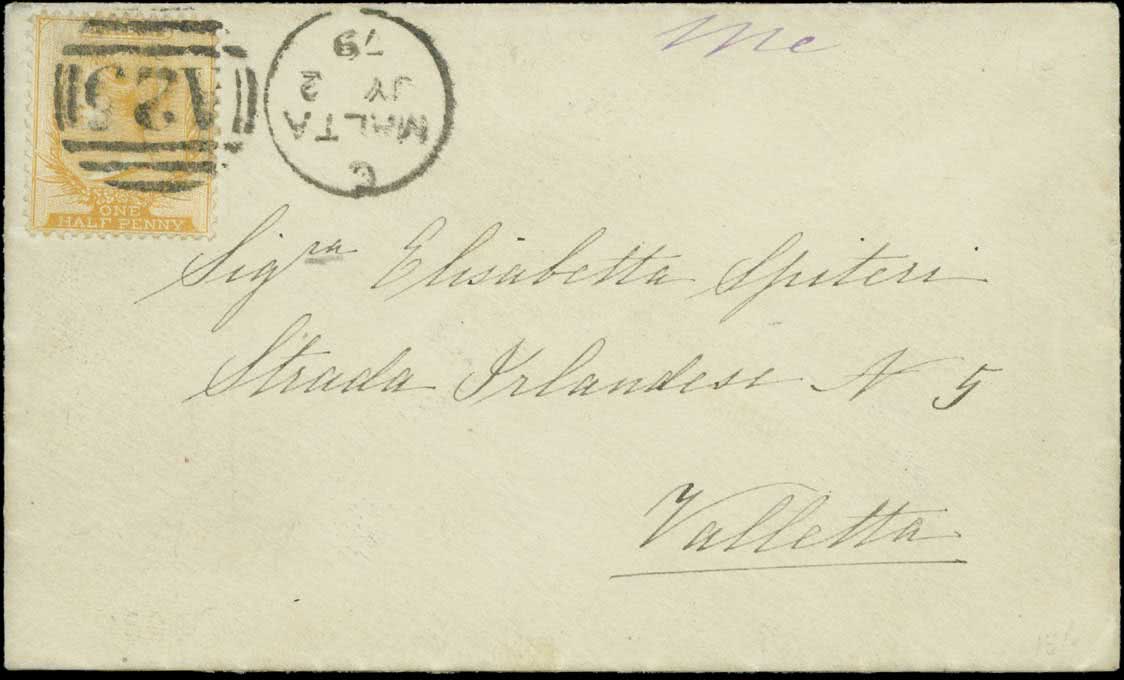 Me
A25
C
MALTA
JY 2
79
ONE
HALF PENNY
Sigra Elisabetta Spiteri
Strada Irlandese N 5
Valletta